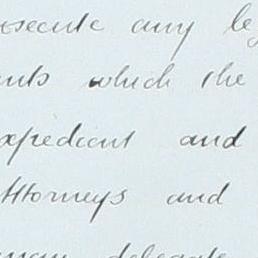 execute any le
ents which the
expedient and
Attorneys and
may delegate